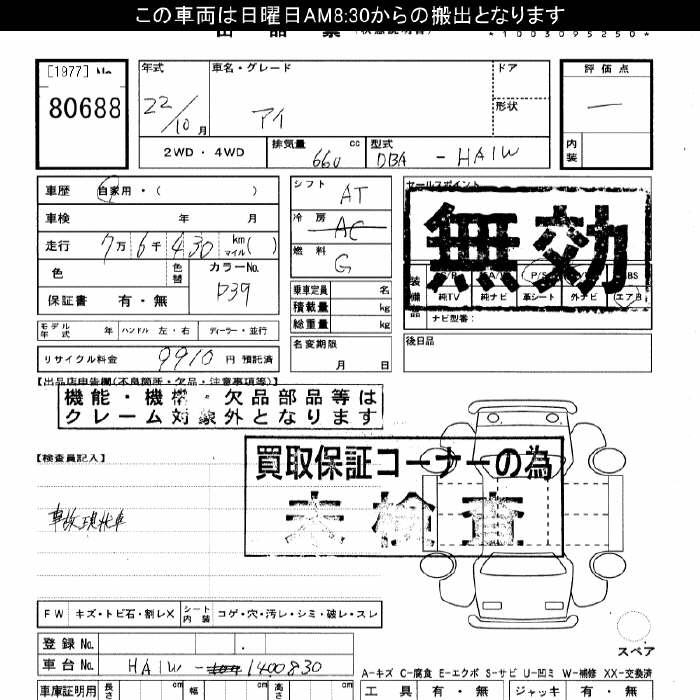 この車両は日曜日AM8:30からの搬出となります
*1003095250*
[1977] No
80688
年式
22/10 月
車名・グレード
アイ
ドア
形状
評価点
―
内装
2WD・4WD
排気量 660 cc
型式 DBA - HA1W
車歴 自家用・( )
車検 年 月
走行 7万 6千 430 km マイル ( )
色 色替 カラーNo. D39
保証書 有・無
シフト AT
冷房 AC
燃料 G
乗車定員 名
積載量 kg
総重量 kg
名変期限 月 日
セールスポイント
無効
装備品
P/S ABS
純TV 純ナビ 革シート 外ナビ エアB
ナビ型番:
後日品
モデル年式 年 ハンドル 左・右 ディーラー・並行
リサイクル料金 9910 円 預託済
【出品店申告欄(不良箇所・欠品・注意事項等)】
機能・機構・欠品部品等は
クレーム対象外となります
【検査員記入】
買取保証コーナーの為
未検査
事故現状車
FW キズ・トビ石・割レX シート内装 コゲ・穴・汚レ・シミ・破レ・スレ
スペア
登録No.
車台No. HA1W - 1400830
A-キズ C-腐食 E-エクボ S-サビ U-凹ミ W-補修 XX-交換済
車庫証明用 長さ cm 幅 cm 高さ cm
工具 有・無 ジャッキ 有・無